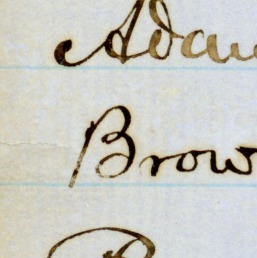 Adam
Brow